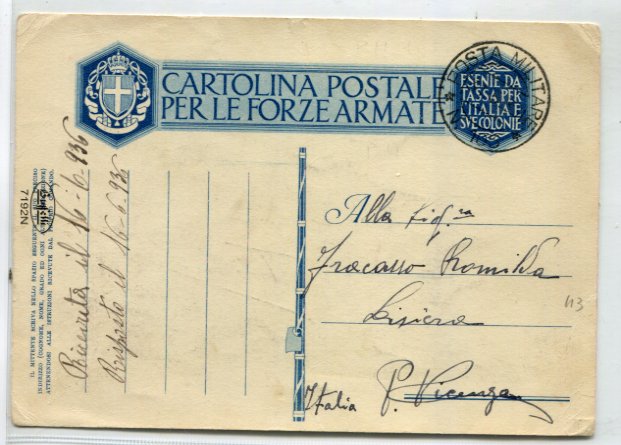 CARTOLINA POSTALE
PER LE FORZE ARMATE
ESENTE DA
TASSA PER
L'ITALIA E
SVE COLONIE
POSTA MILITARE
IL MITTENTE SCRIVA NELLO SPAZIO SEGUENTE IL
INDIRIZZO (COGNOME, NOME, GRADO ED OGNI
ATTENENDOSI ALLE ISTRUZIONI RICEVUTE DAL COMANDO.
7192N
Ricevuta il 16-6-936
Risposto il 16-6-936
Alla Sig.ra
Fracasso Romilda
Lisiera
P. Vicenza
Italia
113